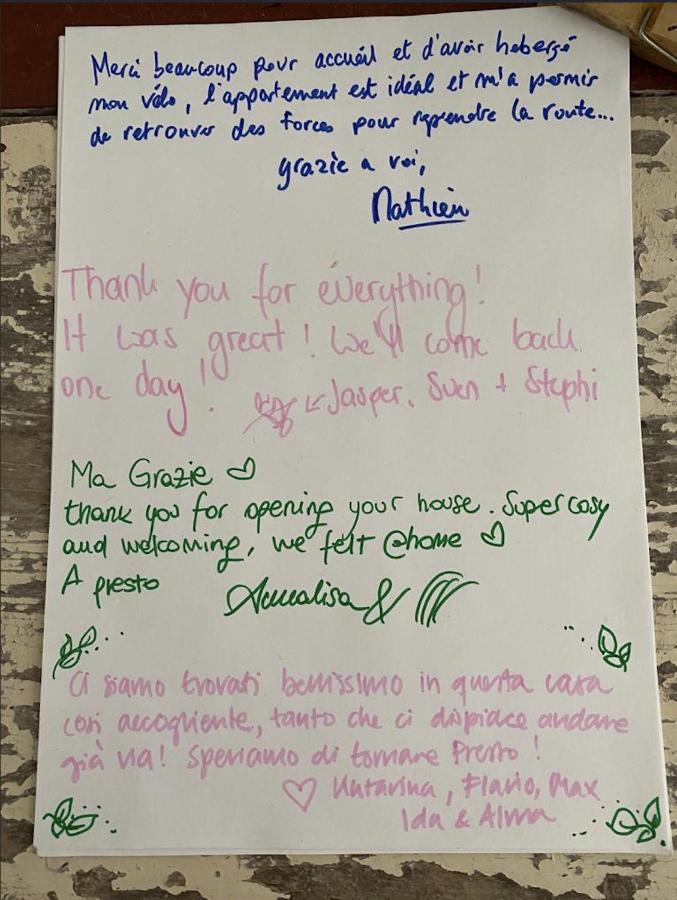 Merci beaucoup pour accueil et d'avoir hebergé
mon vélo, l'appartement est idéal et m'a permis
de retrouver des forces pour reprendre la route...
grazie a voi,
Mathieu
Thank you for everything!
It was great! We'll come back
one day! Jasper, Sven + Stephi
Ma Grazie ♡
thank you for opening your house. Super cosy
and welcoming, we felt @home ♡
A presto
Annalisa &
Ci siamo trovati benissimo in questa casa
così accogliente, tanto che ci dispiace andare
già via! Speriamo di tornare Presto!
♡ Katarina, Flavio, Max
Ida & Alma